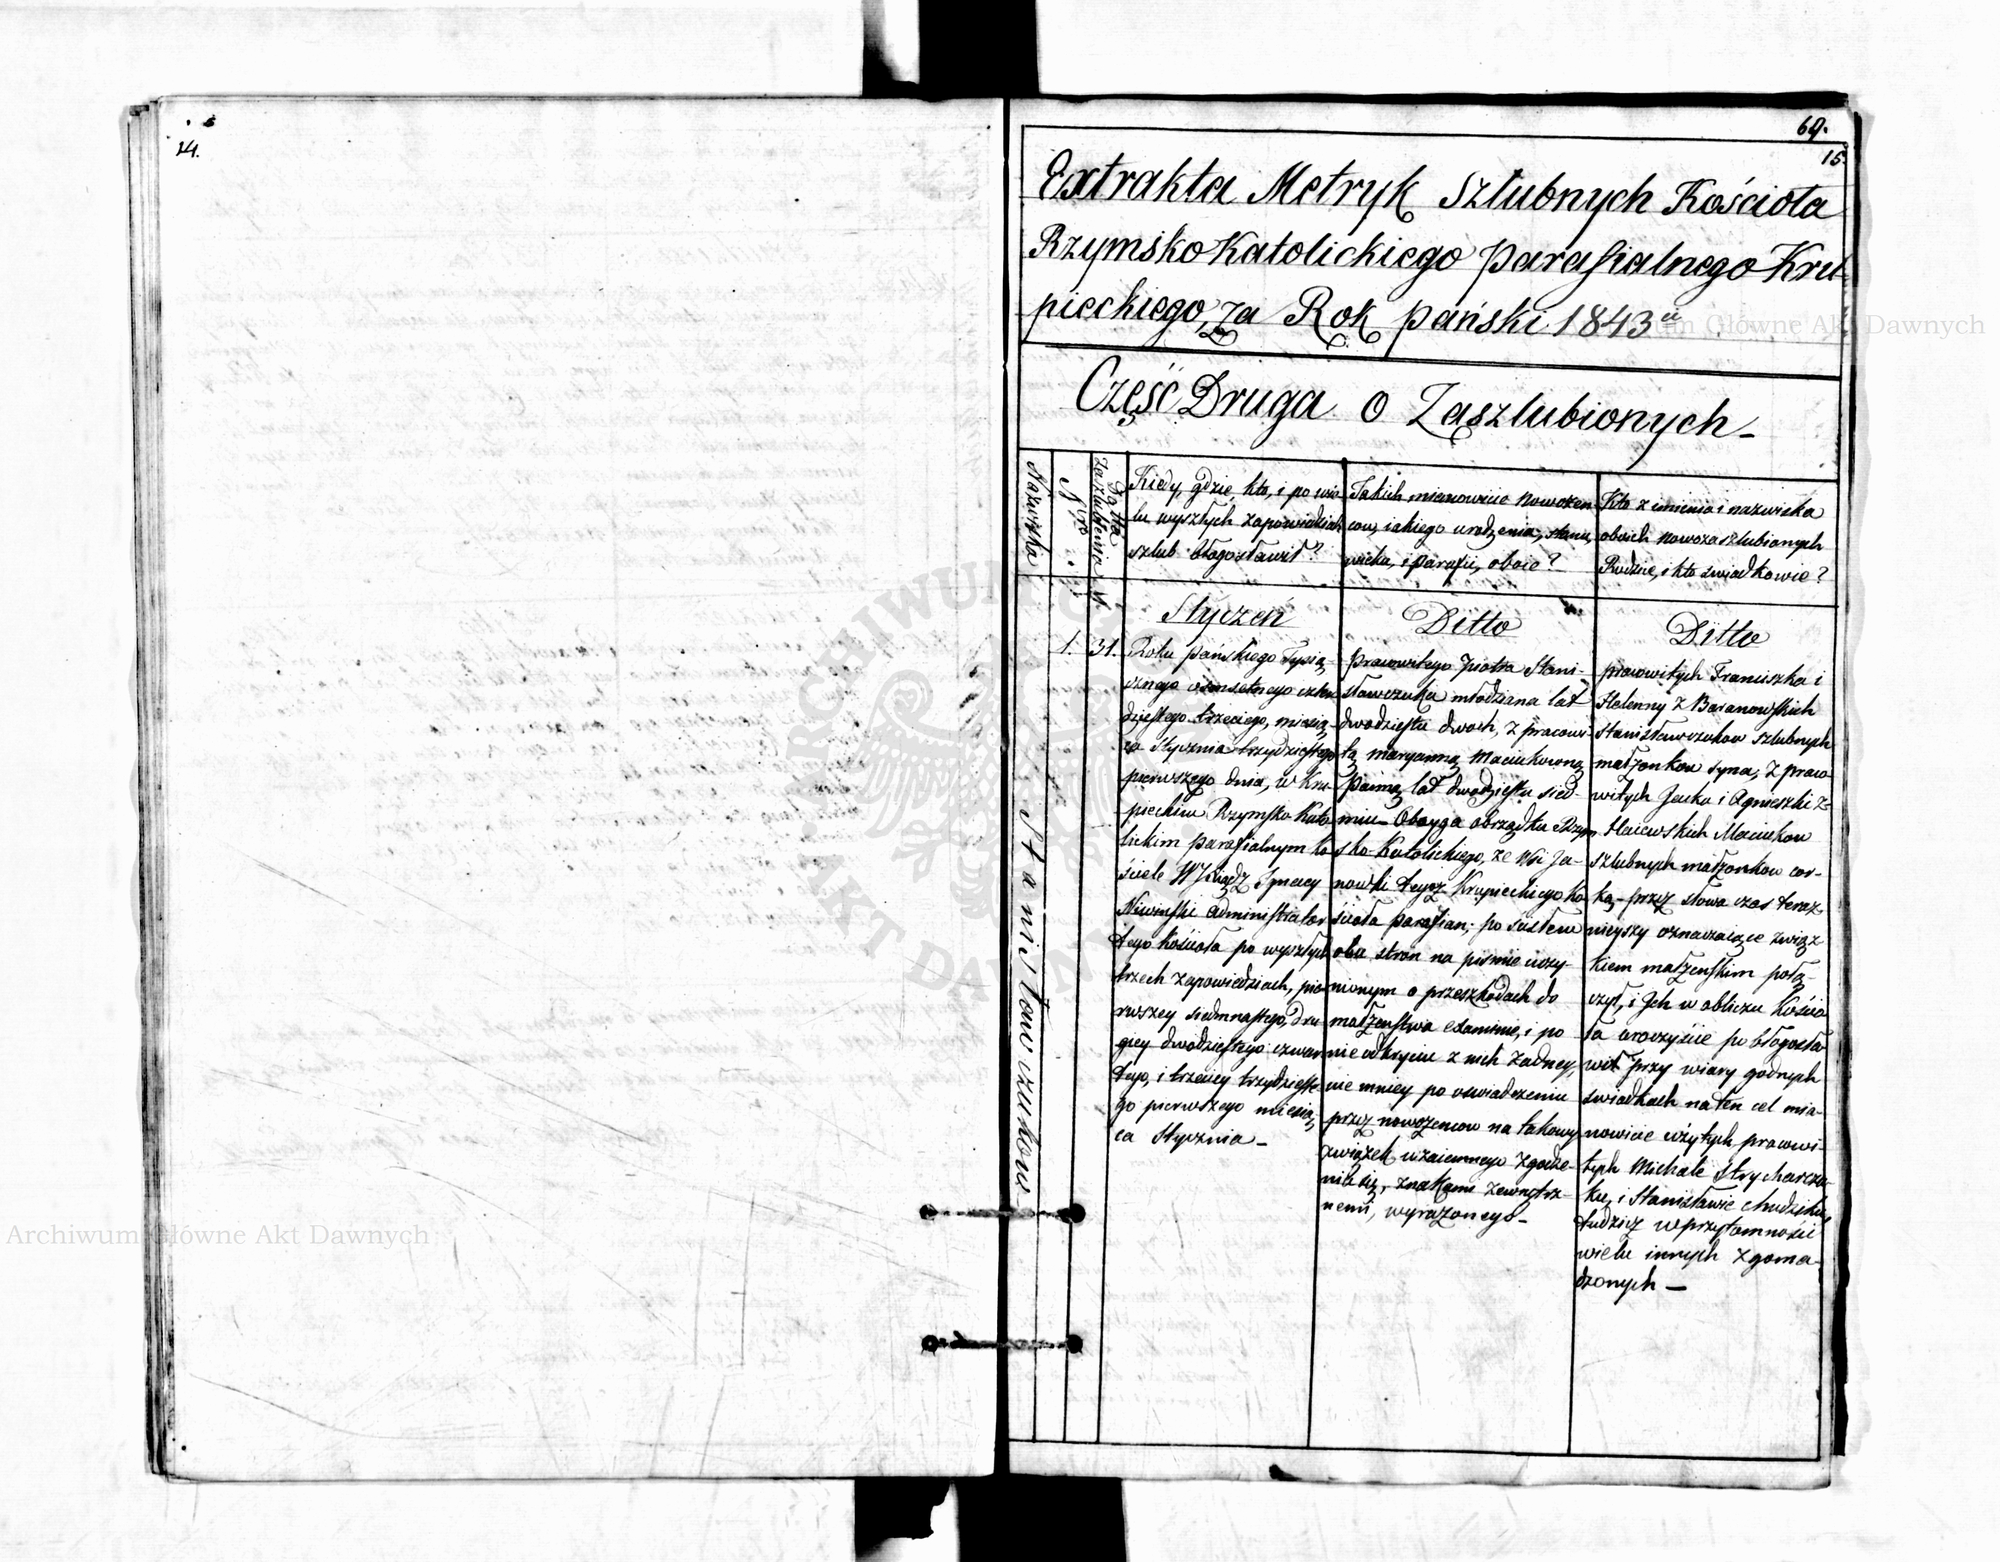 14.
69.
15.
Extrakta Metryk Szlubnych Kościoła
Rzymsko Katolickiego Parafialnego Kru-
pieckiego, za Rok Pański 1843
Część Druga o Zaszlubionych
Nazwiska
Nro
Datta
Zaszlubienia
Kiedy, gdzie, kto, i po wie-
lu wyszłych zapowiedziach
szlub błogosławił?
Jakich mianowicie nowożen-
cow, iakiego urodzenia, stanu,
wieku, i parafii, oboie?
Kto z imienia i nazwiska
oboich nowozaszlubionych
Rodzice, i kto swiadkowie?
Stanisławczukow
1.
31.
Styczeń
Roku Pańskiego Tysią-
cznego osmsetnego czter-
dziestego trzeciego, miesią-
ca Stycznia trzydziestego
pierwszego dnia, w Kru-
pieckim Rzymsko Kato-
lickim parafialnym Ko-
ściele W Xiądz Ignacy
Niwinski Administrator
tego Kościoła po wyszłych
trzech zapowiedziach, pie-
rwszey siedmnastego, dru-
giey dwódziestego czwar-
tego, i trzeciey trzydzieste-
go pierwszego miesią-
ca Stycznia -
Ditto
Pracowitego Piotra Stani-
sławczuka młodziana lat
dwodziestu dwoch, z pracowi-
tą Maryanną Maciukowną
Panną lat dwodziestu sied-
miu - Oboyga obrządku Rzym-
sko-Katolickiego, ze Wsi Ja-
nowki teyż Krupieckiego Ko-
ścioła parafian; po
oba stron na pismie uczy-
nionym o przeszkodach do
małżenstwa examinie, i po
nieodkryciu z nich żadney,
nie mniey po oswiadczeniu
przez nowożencow na takowy
związek wzaiemnego zgodze-
nia się, znakami zewnętrz-
nemi, wyrażonego -
Ditto
pracowitych Franciszka i
Helenny z Baranowskich
Stanisławczukow szlubnych
małżonkow syna, z praco-
witych Jacka i Agnieszki z
Maciukow
szlubnych małżonkow cor-
ką - przez słowa czas teraz
nieyszy oznaczaiące zwiąż
kiem małżenskim połą-
czył, i Ich w obliczu Kościo-
ła uroczyście pobłogosła-
wił przy wiary godnych
swiadkach na ten cel mia-
nowicie użytych pracowi-
tych Michale Strycharczu-
ku, i Stanisławie
tudzież w przytomności
wielu innych zgoma-
dzonych -
Archiwum Główne Akt Dawnych
Archiwum Główne Akt Dawnych
ARCHIWUM GŁÓWNE AKT DAWNYCH